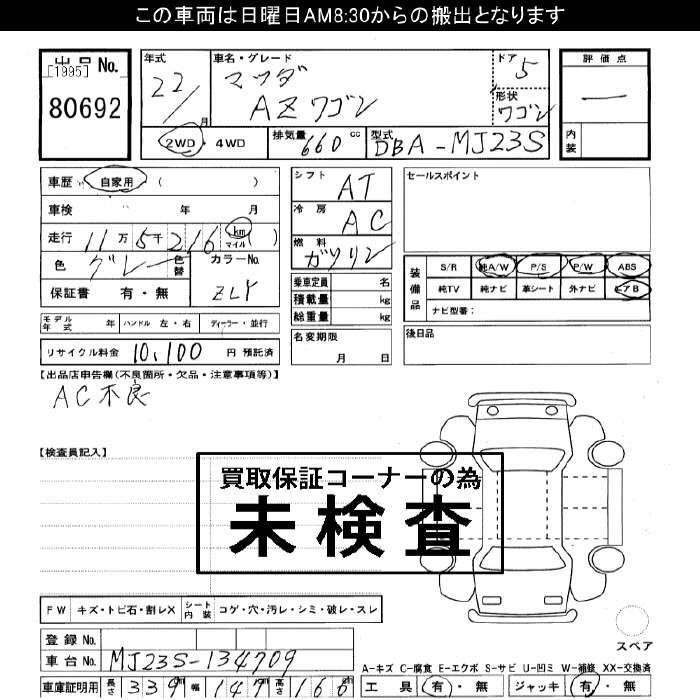 この車両は日曜日AM8:30からの搬出となります
出品No.
[1995]
80692
年式
22/
月
車名・グレード
マツダ
AZワゴン
ドア
5
形状
ワゴン
評価点
—
内装
2WD・4WD
排気量
660
cc
型式
DBA-MJ23S
車歴
自家用
( )
車検 年 月
走行 11万5千216 km マイル ( )
色 グレー 色替
カラーNo.
ZLY
保証書 有・無
シフト
AT
冷房
AC
燃料
ガソリン
乗車定員 名
積載量 kg
総重量 kg
セールスポイント
装備品
S/R 純A/W P/S P/W ABS
純TV 純ナビ 革シート 外ナビ エアB
ナビ型番:
モデル年式 年 ハンドル 左・右 ディーラー・並行
名変期限
月 日
後日品
リサイクル料金 10,100 円 預託済
【出品店申告欄(不良箇所・欠品・注意事項等)】
AC不良
【検査員記入】
買取保証コーナーの為
未検査
FW キズ・トビ石・割レX シート内装 コゲ・穴・汚レ・シミ・破レ・スレ
スペア
登録No.
車台No. MJ23S-134709
A-キズ C-腐食 E-エクボ S-サビ U-凹ミ W-補修 XX-交換済
車庫証明用 長さ 339 幅 147 高さ 166
工具 有・無 ジャッキ 有・無